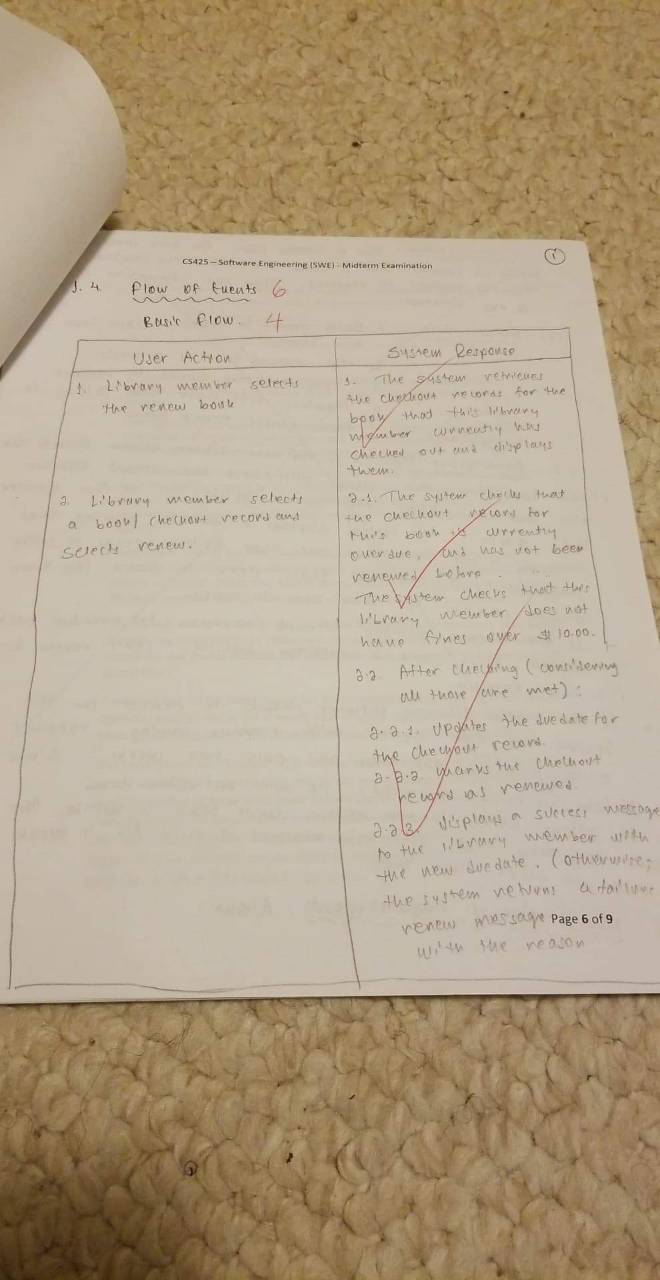 1
CS425 – Software Engineering (SWE) - Midterm Examination
1.4 Flow of Events 6
Basic Flow. 4
User Action
System Response
1. Library member selects
the renew book
1. The system retrieves
the checkout records for the
book that this library
member currently has
checked out and displays
them.
2. Library member selects
a book/ checkout record and
selects renew.
2.1. The system checks that
the checkout record for
this book is currently
overdue, and has not been
renewed before.
The system checks that this
library member does not
have fines over $10.00.
2.2 After checking (considering
all those are met):
2.2.1. Updates the duedate for
the checkout record.
2.2.2 marks the checkout
record as renewed
2.2.3. displays a success message
to the library member with
the new duedate. (otherwise;
the system returns a failure
renew message Page 6 of 9
with the reason